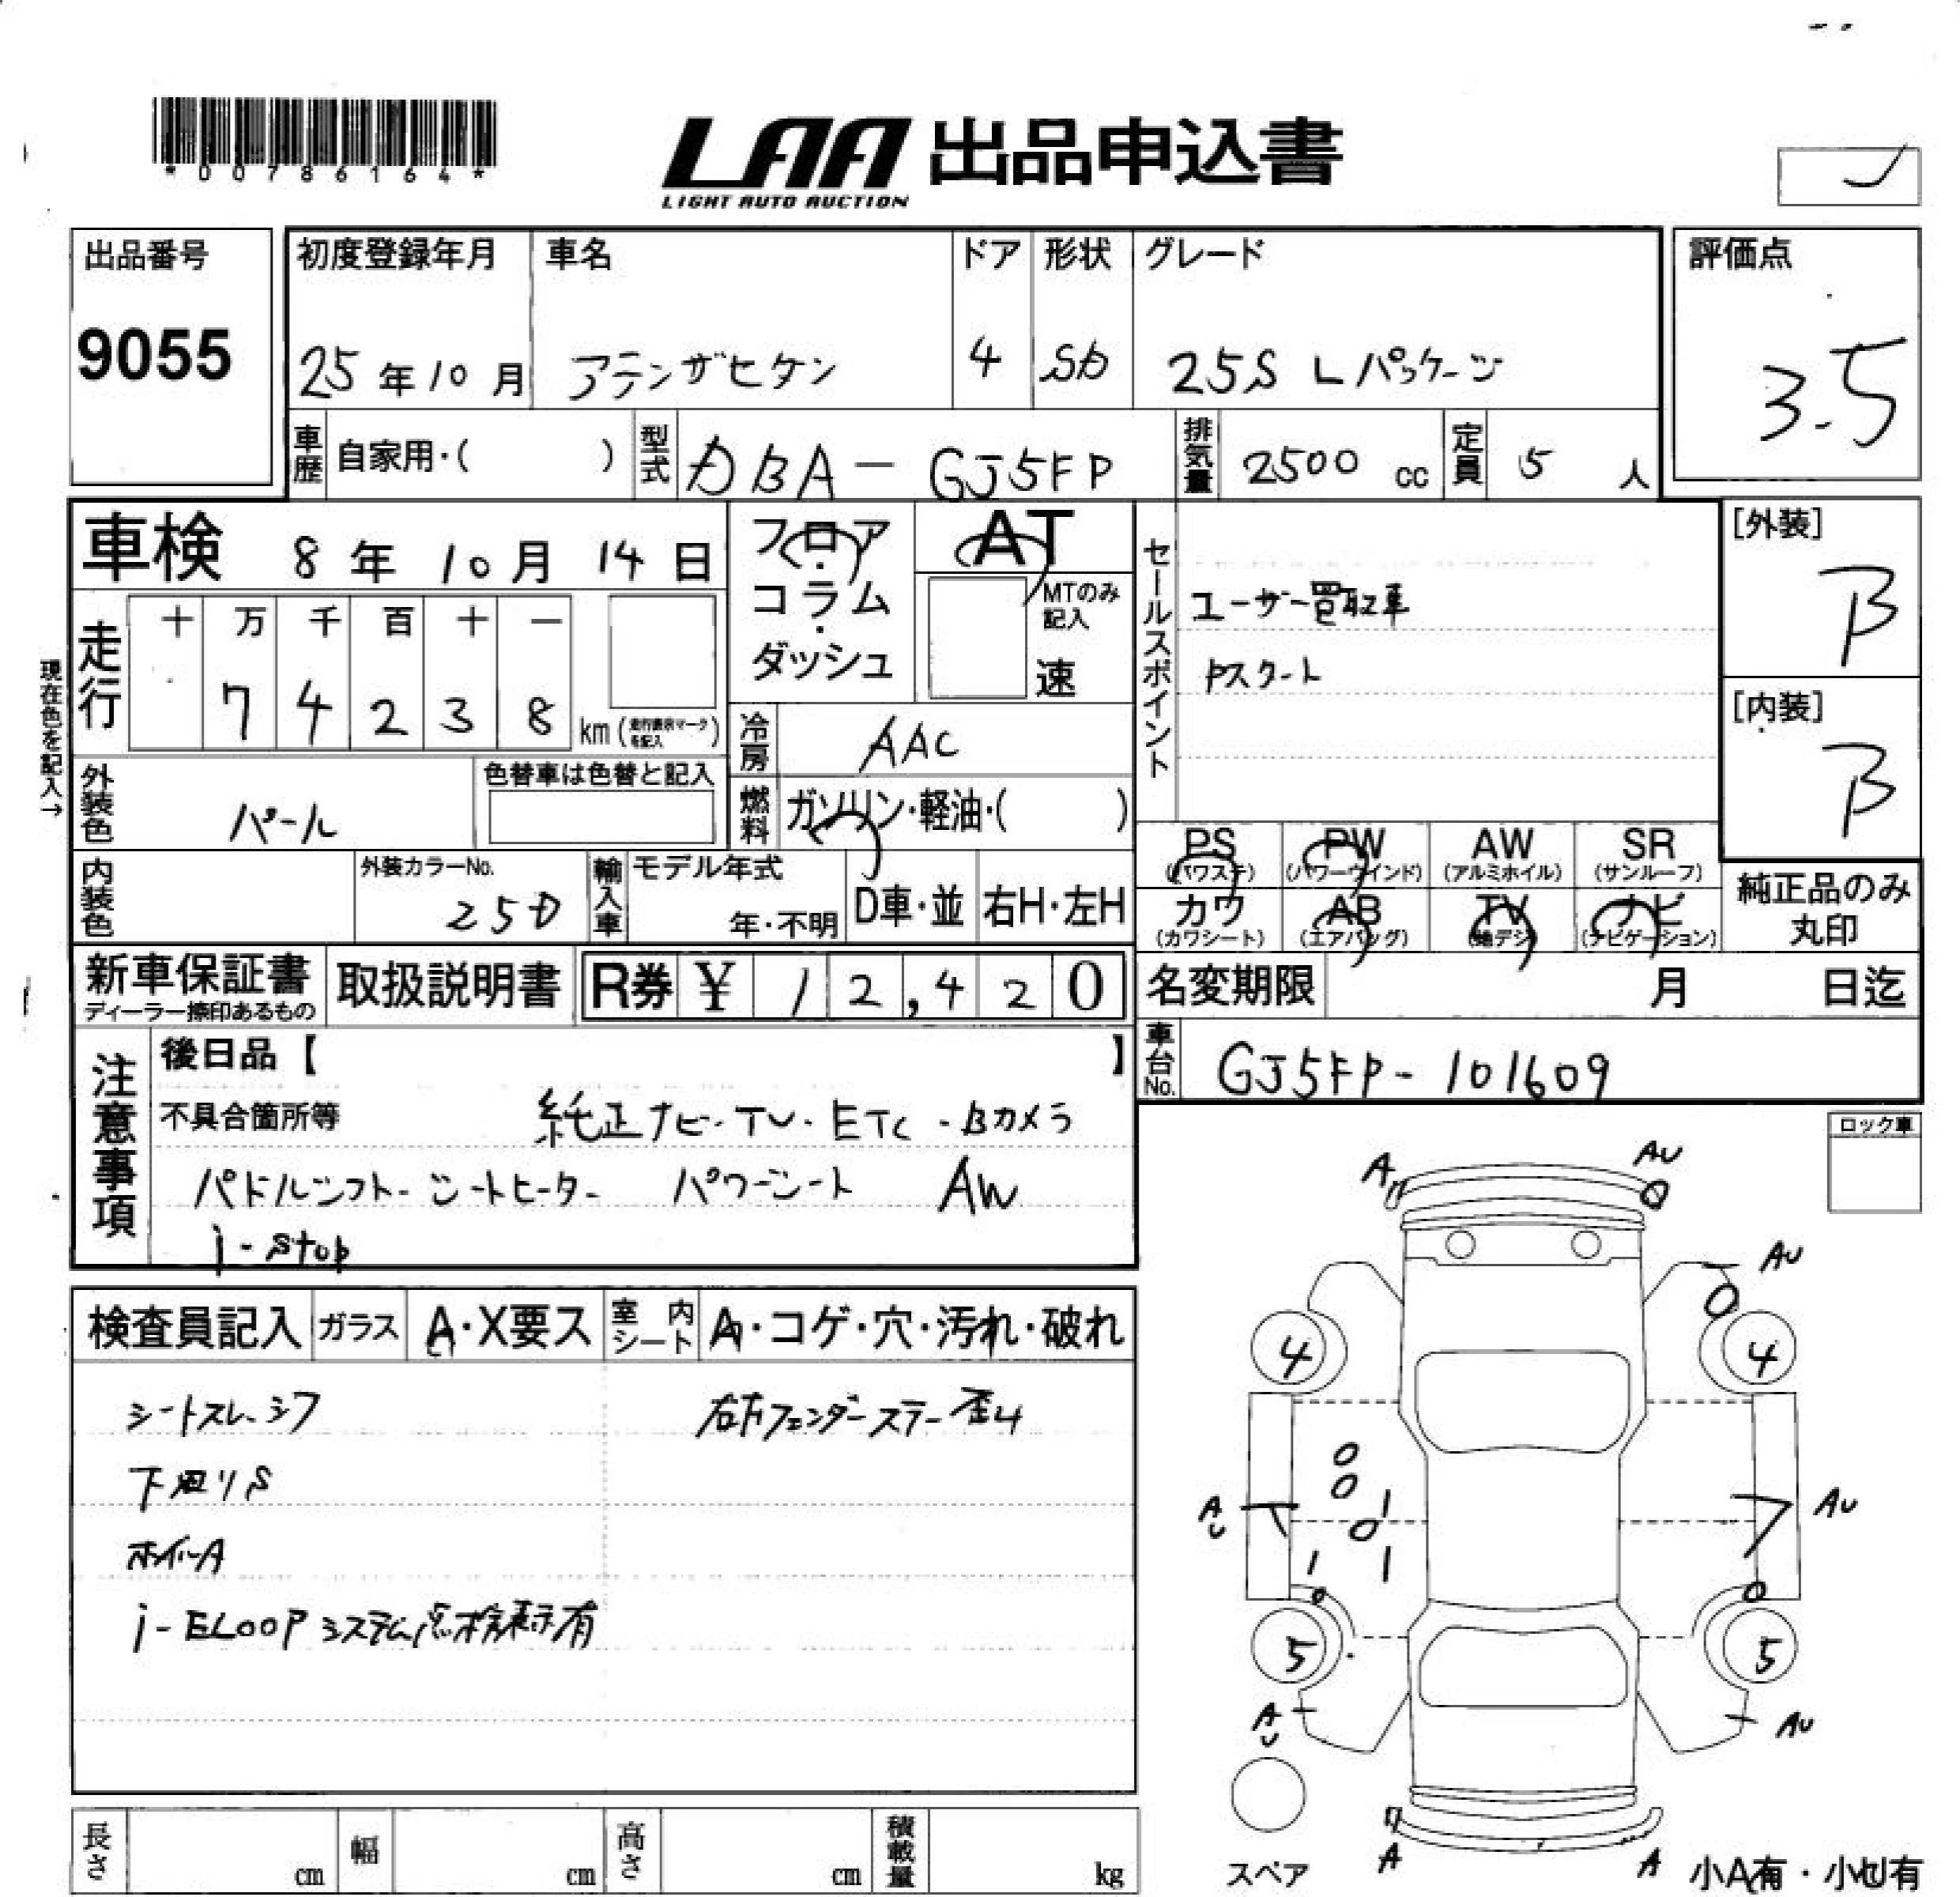 *00786164*
LAA 出品申込書
LIGHT AUTO AUCTION
出品番号
9055
初度登録年月 車名 ドア 形状 グレード
25年10月 アテンザセダン 4 SD 25S Lパッケージ
評価点
3.5
車歴 自家用・( ) 型式 DBA-GJ5FP 排気量 2500 cc 定員 5 人
車検 8年10月14日
フロア・コラム・ダッシュ
AT
MTのみ記入
速
セールスポイント
ユーザー買取車
Pスタート
[外装]
B
[内装]
B
現在色を記入→
走行 十 万 千 百 十 一
7 4 2 3 8 km (走行表示マークを記入)
冷房 AAC
外装色 パール
色替車は色替と記入
燃料 ガソリン・軽油・( )
内装色
外装カラーNo.
25D
輸入車 モデル年式
年・不明 D車・並 右H・左H
PS (パワステ) PW (パワーウインド) AW (アルミホイル) SR (サンルーフ)
カワ (カワシート) AB (エアバッグ) TV (地デジ) ナビ (ナビゲーション)
純正品のみ
丸印
新車保証書
ディーラー捺印あるもの
取扱説明書
R券 ¥ 12,420
名変期限 月 日迄
車台No. GJ5FP-101609
注意事項
後日品【 】
不具合箇所等 純正ナビ・TV・ETC・Bカメラ
パドルシフト・シートヒーター パワーシート AW
i-stop
ロック車
検査員記入 ガラス A・X要ス 室内シート A・コゲ・穴・汚れ・破れ
シートスレ・シワ 右左フェンダーステー歪4
下廻りS
ホイールA
i-ELOOPシステム点検表示有
A AU
AU
4 4
AU AU
5 5
AU AU
A A
スペア
小A有・小U有
長さ cm 幅 cm 高さ cm 積載量 kg